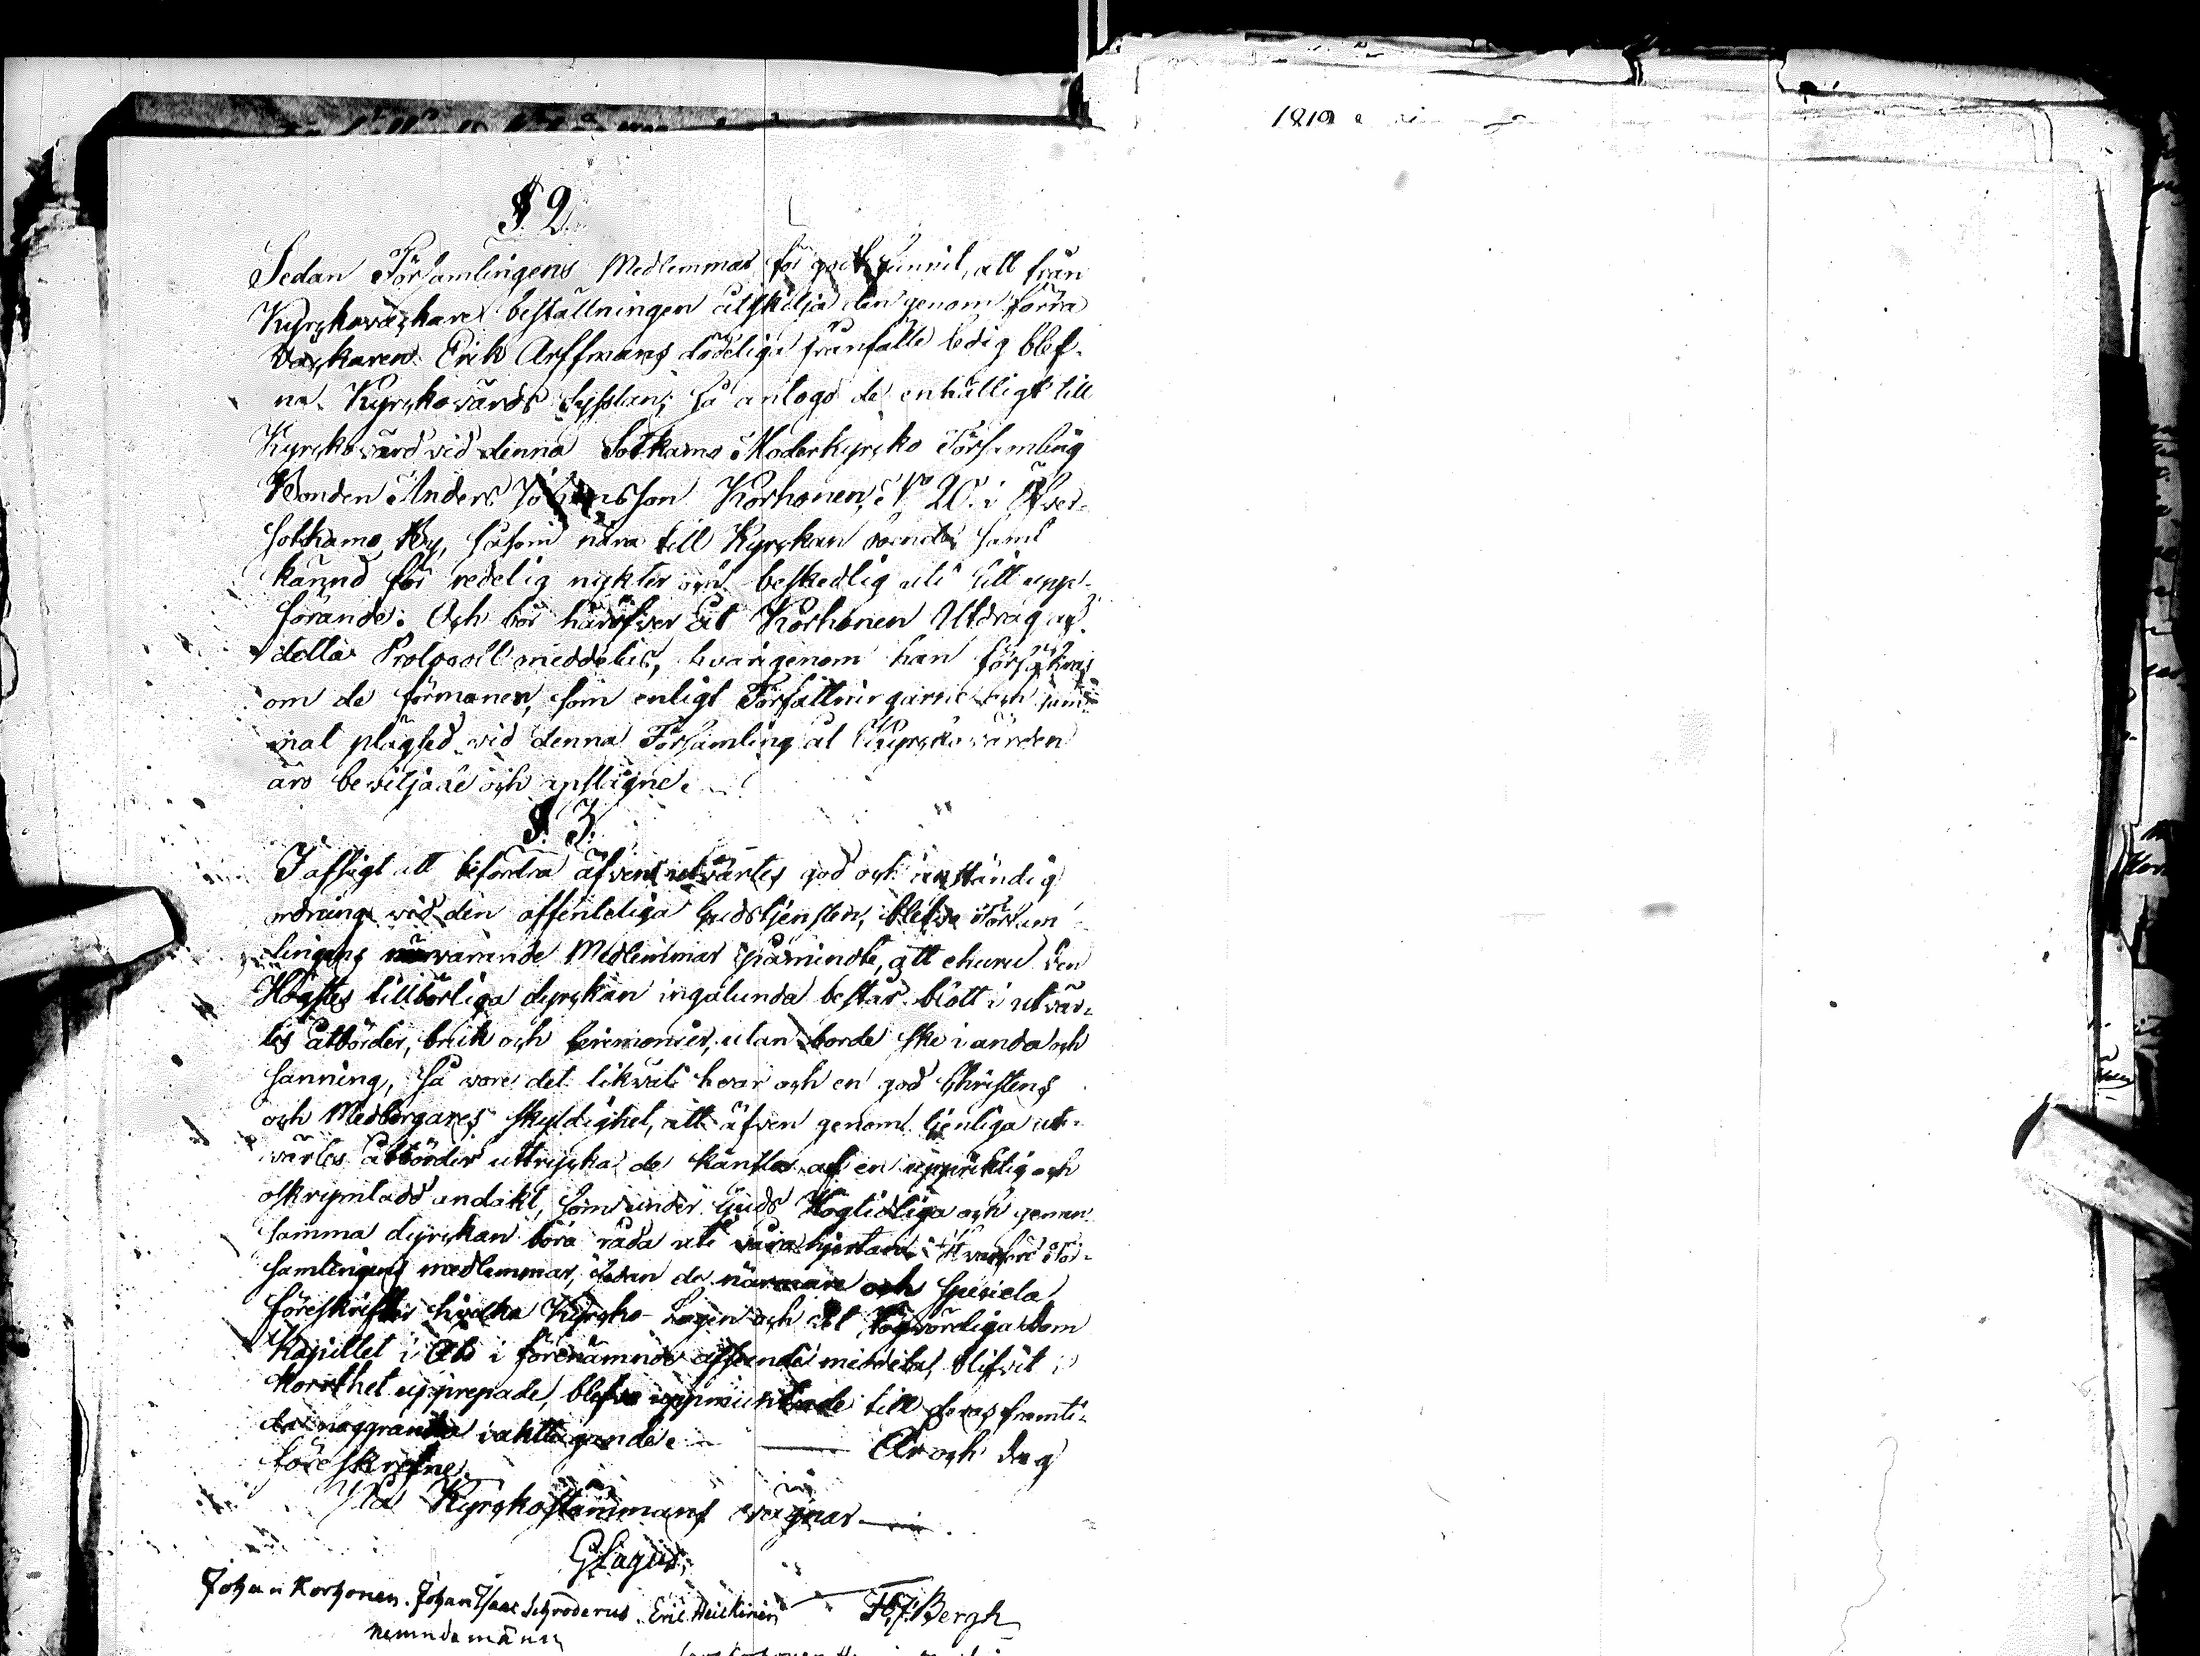 § 2.
Sedan Församlingens Medlemmar för godt funnit, att från
Kyrckoväckare beställningen åtskilja den genom förra
Väckaren Erik Arffmans dödeliga frånfälle ledig blef-
na Kyrckovärds Sysslan; så antogo de enhälligt till
Kyrckovärd vid denna Sotkamo Moderkyrcko Församling
Bonden Anders Johansson Korhonen, No 20 i Öfver-
sotkamo By, såsom nära till Kyrckan boende samt
kännd för redelig nykter och beskedlig uti sitt upp-
förande. Och bör häröfver åt Korhonen Utdrag af
detta Protocoll meddelas, hvarigenom han försäkras
om de förmåner, som enligt Författningarne och
plägsed vid denna Församling åt Kyrckovärden
äro beviljade och anslagne.
§ 3.
I afsigt att befordra äfven utvärtes god och anständig
ordning vid den offenteliga Gudstjensten, blefvo Församm-
lingens närvarande Medlemmar påminde, att ehuru den
Högstes tillbörliga dyrckan ingalunda består blott i utvär-
tes åtbörder, bruk och Ceremonier, utan borde ske i anda och
sanning, så vore det likväl hvar och en god Christens
och Medborgares skyldighet, att äfven genom tjenliga ut-
värtes åtbörder uttrycka de känslor af en uppriktig och
oskrymtad andakt, som under Guds Högtidliga och geman-
samma dyrckan böra råda uti våra hjertan. Hvarföre För-
samlingens medlemmar, sedan de närmare och speciela
föreskrifter hvilka Kyrcko-Lagen och det Högvördiga Dom
Kapitlet i Åbo i förenämnde afseende meddelat, blifvit i
korthet upprepade, blefvo uppmuntrade till deras framti-
da noggranna iakttagande. År och dag
föreskrefne.
På Kyrckostämmans vägnar
G Lagus.
Johan Korhonen. Johan Isaac Schroderus. Eric Heickinen H J Bergh
nemndemänn